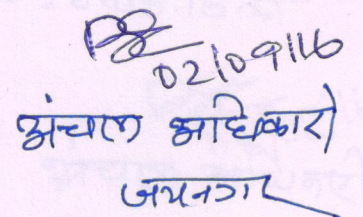 02/09/16
अंचल अधिकारी
जयनगर